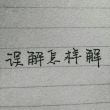 误解怎样解